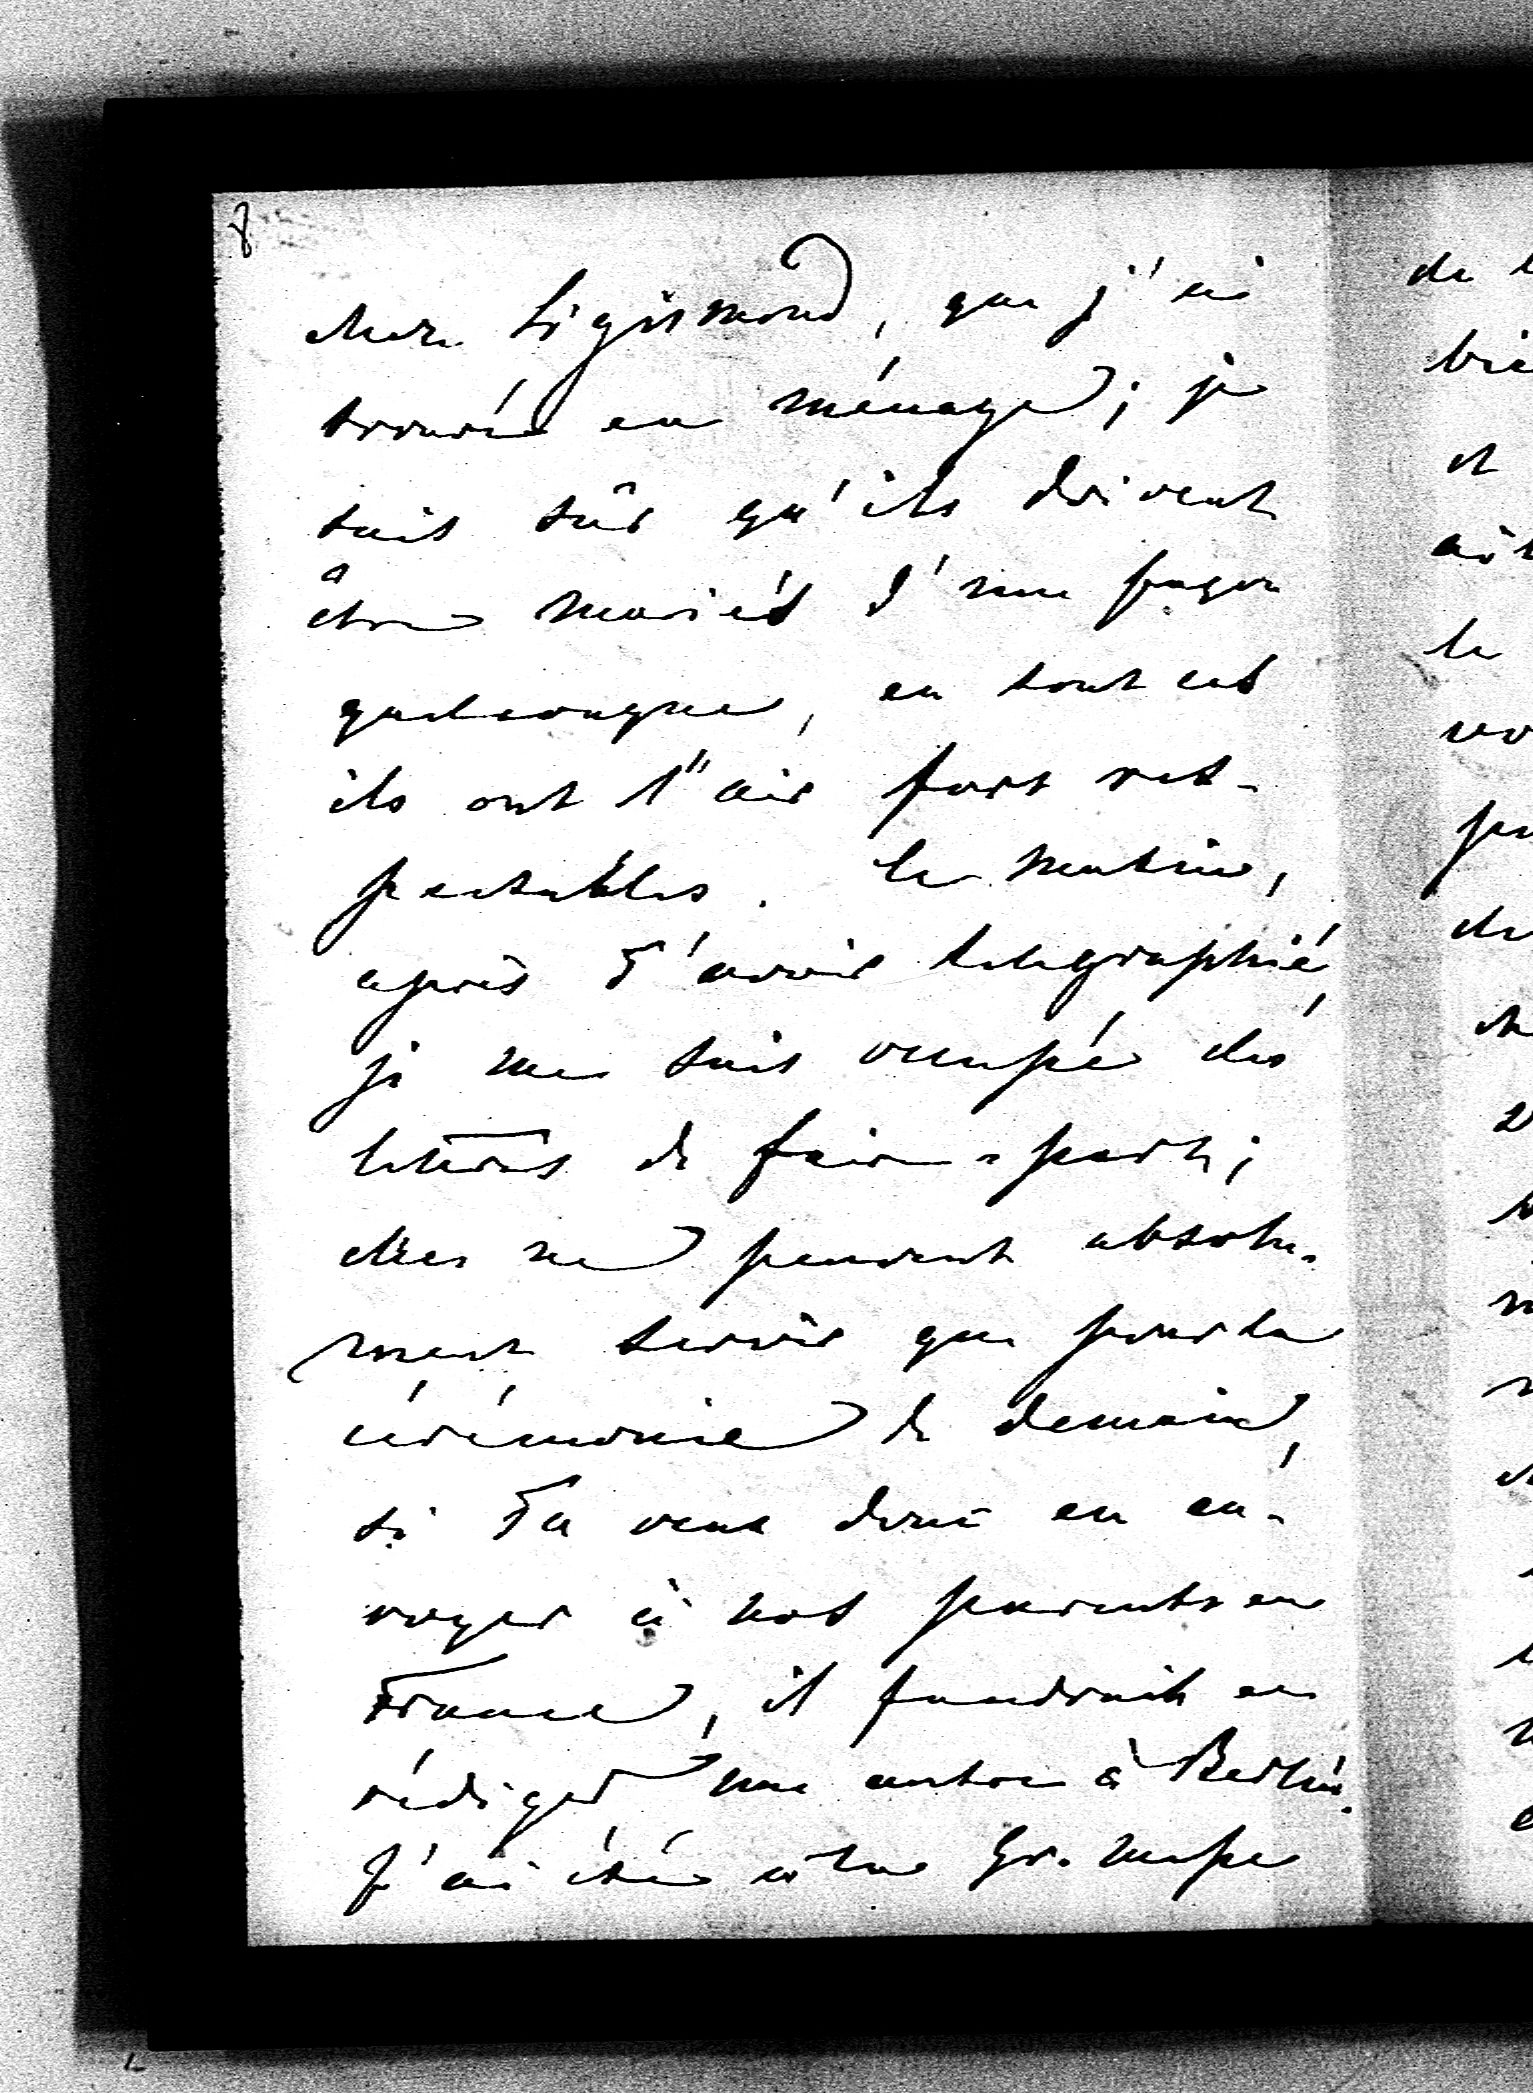 8
chez Sigismond, que j'ai
trouvé en ménage; je
suis sûr qu'ils doivent
être mariés d'une façon
quelconque, en tout cas
ils ont l'air fort res-
pectables. Le matin,
après t'avoir télégraphié,
je me suis occupé des
lettres de faire-part;
elles ne peuvent absolu-
ment servir que pour la
cérémonie de demain,
si tu veux donc en en-
voyer à nos parents en
France, il faudrait en
rédiger une autre à Berlin.
J'ai été